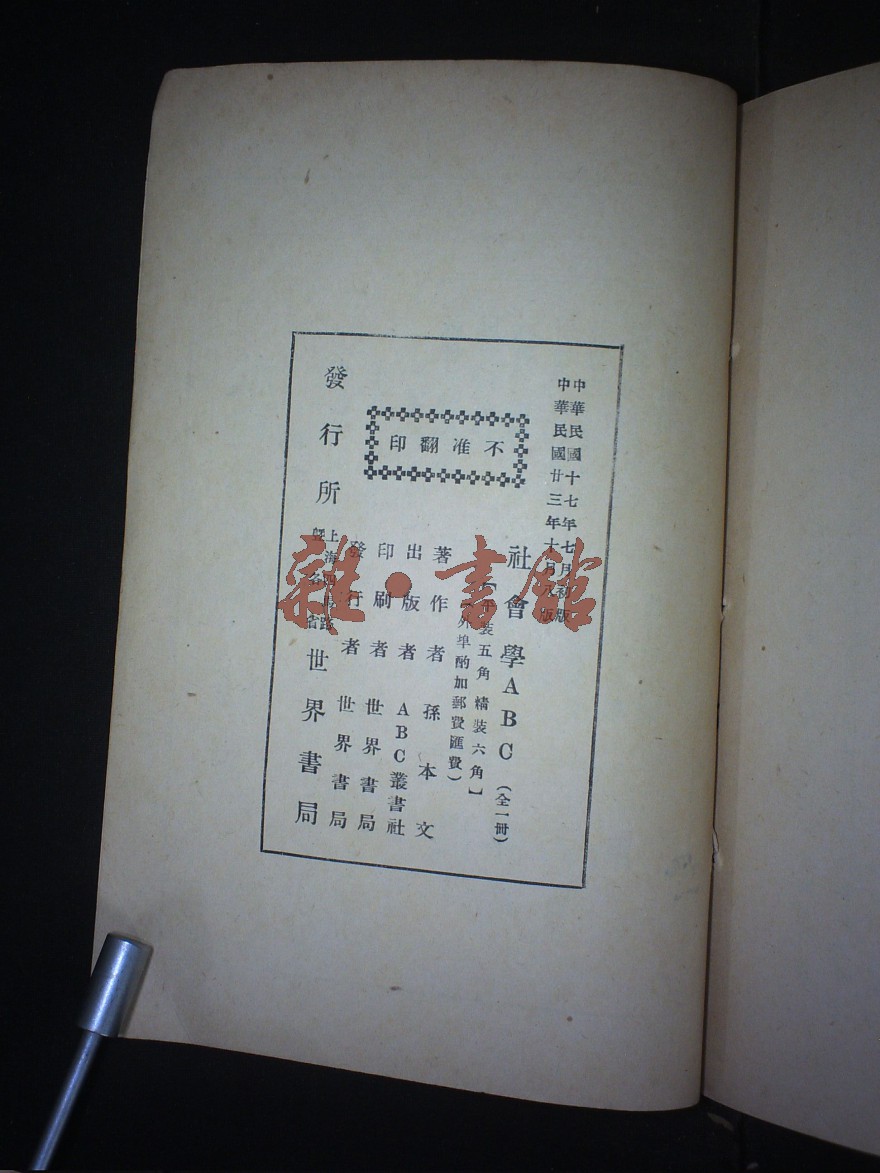 中華民國十七年七月初版
中華民國廿三年十月版
不准翻印
社會學ABC(全一冊)
【平裝五角 精裝六角】
(外埠酌加郵費匯費)
著作者 孫本文
出版者 ABC叢書社
印刷者 世界書局
發行者 世界書局
發行所 上海四馬路
暨各省
世界書局
雜·書館